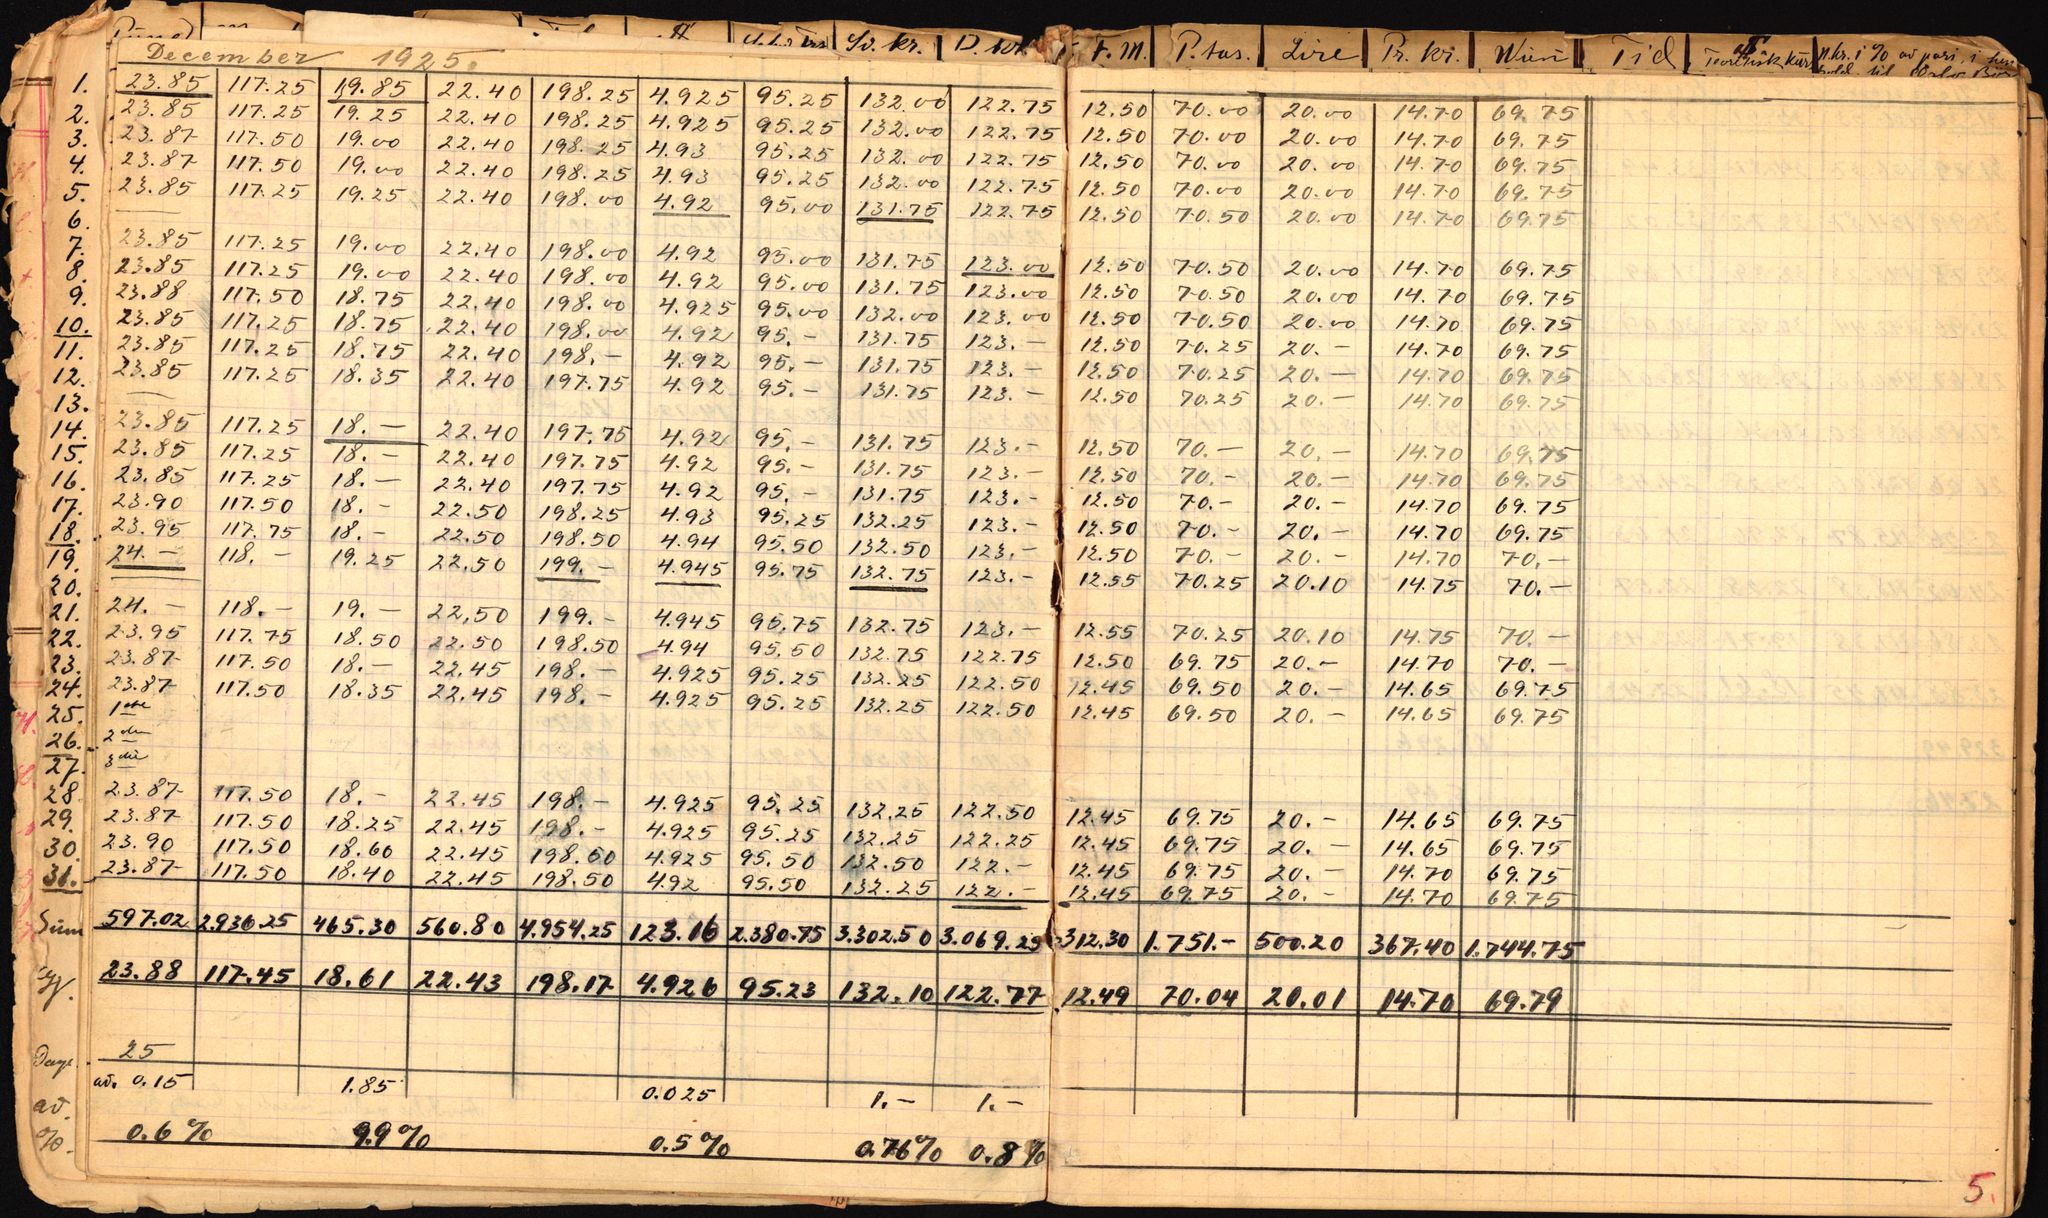 Sv. kr. D. kr. F. M. P.tas. Lire Pr. kr. Wien Tid Teoretisk kurs N.kr. i % av pari, i hen
hold til Oslo Børs
December 1925.
1. 23.85 117.25 19.85 22.40 198.25 4.925 95.25 132.00 122.75 12.50 70.00 20.00 14.70 69.75
2. 23.85 117.25 19.25 22.40 198.25 4.925 95.25 132.00 122.75 12.50 70.00 20.00 14.70 69.75
3. 23.87 117.50 19.00 22.40 198.25 4.93 95.25 132.00 122.75 12.50 70.00 20.00 14.70 69.75
4. 23.87 117.50 19.00 22.40 198.25 4.93 95.25 132.00 122.75 12.50 70.00 20.00 14.70 69.75
5. 23.85 117.25 19.25 22.40 198.00 4.92 95.00 131.75 122.75 12.50 70.50 20.00 14.70 69.75
6.
7. 23.85 117.25 19.00 22.40 198.00 4.92 95.00 131.75 123.00 12.50 70.50 20.00 14.70 69.75
8. 23.85 117.25 19.00 22.40 198.00 4.92 95.00 131.75 123.00 12.50 70.50 20.00 14.70 69.75
9. 23.88 117.50 18.75 22.40 198.00 4.925 95.00 132.00 123.00 12.50 70.50 20.00 14.70 69.75
10. 23.85 117.25 18.75 22.40 198.00 4.92 95.- 131.75 123.- 12.50 70.25 20.- 14.70 69.75
11. 23.85 117.25 18.75 22.40 198.- 4.92 95.- 131.75 123.- 12.50 70.25 20.- 14.70 69.75
12. 23.85 117.25 18.35 22.40 197.75 4.92 95.- 131.75 123.- 12.50 70.25 20.- 14.70 69.75
13.
14. 23.85 117.25 18.- 22.40 197.75 4.92 95.- 131.75 123.- 12.50 70.- 20.- 14.70 69.75
15. 23.85 117.25 18.- 22.40 197.75 4.92 95.- 131.75 123.- 12.50 70.- 20.- 14.70 69.75
16. 23.85 117.25 18.- 22.40 197.75 4.92 95.- 131.75 123.- 12.50 70.- 20.- 14.70 69.75
17. 23.90 117.50 18.- 22.50 198.25 4.93 95.25 132.25 123.- 12.50 70.- 20.- 14.70 69.75
18. 23.95 117.75 18.- 22.50 198.50 4.94 95.50 132.50 123.- 12.50 70.- 20.- 14.70 70.-
19. 24.- 118.- 19.25 22.50 199.- 4.945 95.75 132.75 123.- 12.55 70.25 20.10 14.75 70.-
20.
21. 24.- 118.- 19.- 22.50 199.- 4.945 95.75 132.75 123.- 12.55 70.25 20.10 14.75 70.-
22. 23.95 117.75 18.50 22.50 198.50 4.94 95.50 132.75 122.75 12.50 69.75 20.- 14.70 70.-
23. 23.87 117.50 18.- 22.45 198.- 4.925 95.25 132.25 122.50 12.45 69.50 20.- 14.65 69.75
24. 23.87 117.50 18.35 22.45 198.- 4.925 95.25 132.25 122.50 12.45 69.50 20.- 14.65 69.75
25. 1ste
26. 2den
27. 3die
28. 23.87 117.50 18.- 22.45 198.- 4.925 95.25 132.25 122.50 12.45 69.75 20.- 14.65 69.75
29. 23.87 117.50 18.25 22.45 198.- 4.925 95.25 132.25 122.25 12.45 69.75 20.- 14.65 69.75
30. 23.90 117.50 18.60 22.45 198.50 4.925 95.50 132.50 122.- 12.45 69.75 20.- 14.70 69.75
31. 23.87 117.50 18.40 22.45 198.50 4.92 95.50 132.25 122.- 12.45 69.75 20.- 14.70 69.75
Sum 597.02 2.936.25 465.30 560.80 4.954.25 123.16 2.380.75 3.302.50 3.069.25 312.30 1.751.- 500.20 367.40 1.744.75
Gj. 23.88 117.45 18.61 22.43 198.17 4.926 95.23 132.10 122.77 12.49 70.04 20.01 14.70 69.79
Dage 25
av. 0.15 1.85 0.025 1.- 1.-
av.
%. 0.6% 9.9% 0.5% 0.76% 0.8%
5.